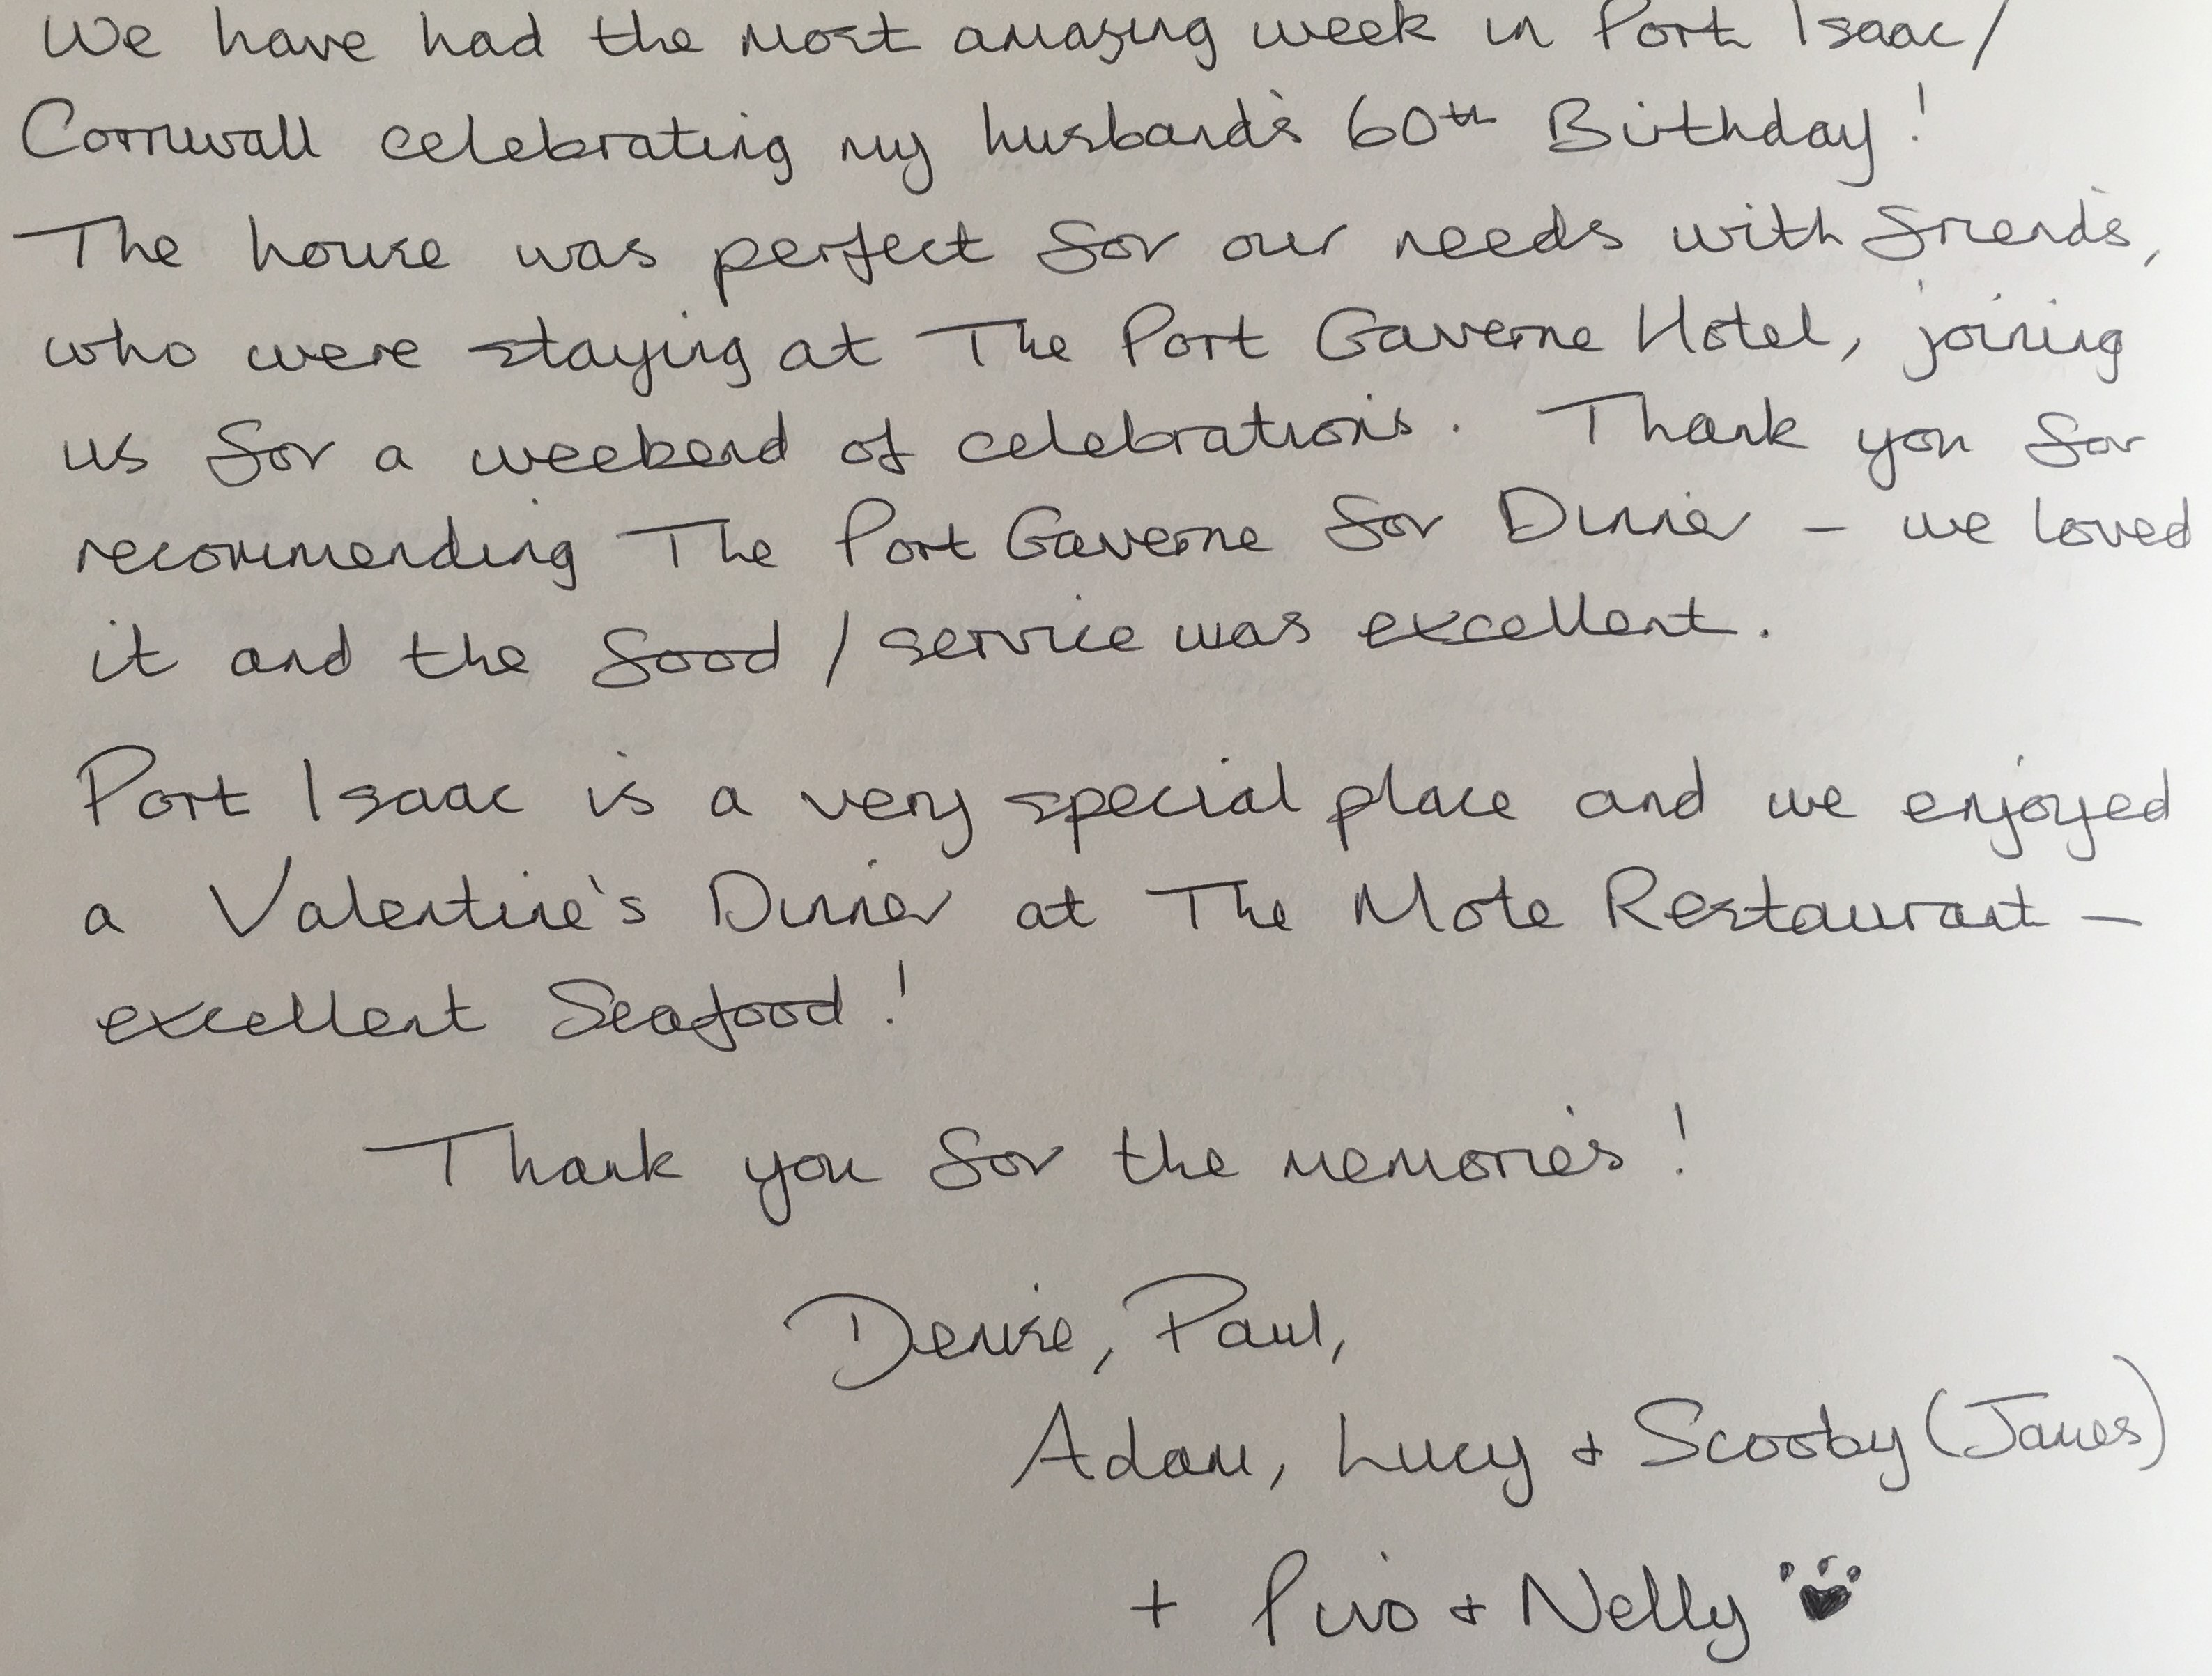 We have had the most amazing week in Port Isaac/
Cornwall celebrating my husband's 60th Birthday!
The house was perfect for our needs with friends,
who were staying at The Port Gaverne Hotel, joining
us for a weekend of celebrations. Thank you for
recommending The Port Gaverne for Dinner – we loved
it and the food / service was excellent.
Port Isaac is a very special place and we enjoyed
a Valentine's Dinner at The Mote Restaurant –
excellent Seafood!
Thank you for the memories!
Denise, Paul,
Adam, Lucy + Scooby (James)
+ + Nelly